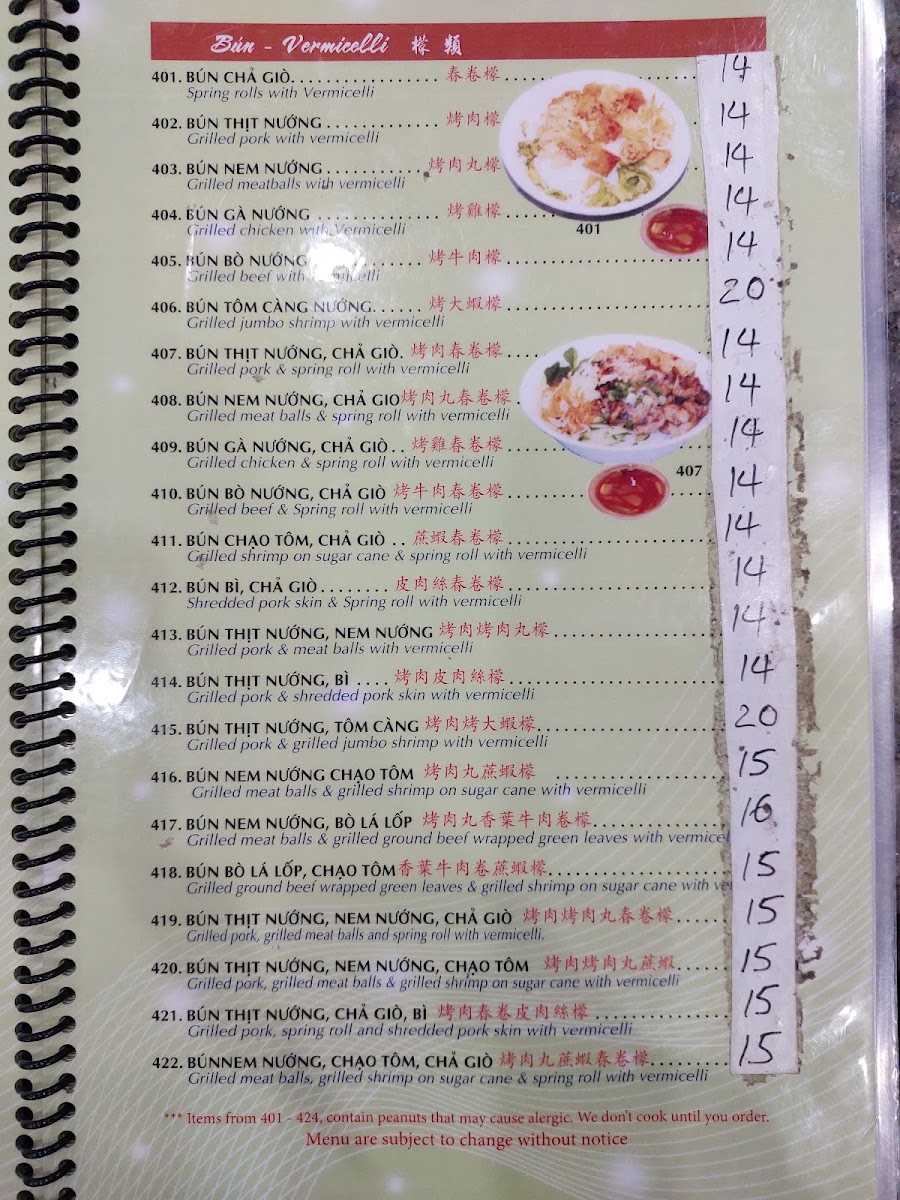 Bún - Vermicelli 檬 類
401. BÚN CHẢ GIÒ. . . . . . . . . . . . . . . . . 春卷檬 . . . . 14
Spring rolls with Vermicelli
402. BÚN THỊT NƯỚNG . . . . . . . . . . . . . 烤肉檬 14
Grilled pork with vermicelli
403. BÚN NEM NƯỚNG . . . . . . . . . . . . 烤肉丸檬 14
Grilled meatballs with vermicelli
404. BÚN GÀ NƯỚNG . . . . . . . . . . . . . . 烤雞檬 . . . . 14
Grilled chicken with Vermicelli
401
405. BÚN BÒ NƯỚNG . . . . . . . . . . . . 烤牛肉檬 . . . . 14
Grilled beef with
406. BÚN TÔM CÀNG NƯỚNG. . . . . . 烤大蝦檬 . . . . 20
Grilled jumbo shrimp with vermicelli
407. BÚN THỊT NƯỚNG, CHẢ GIÒ. 烤肉春卷檬 . . . . 14
Grilled pork & spring roll with vermicelli
408. BÚN NEM NƯỚNG, CHẢ GIO烤肉丸春卷檬 . 14
Grilled meat balls & spring roll with vermicelli
409. BÚN GÀ NƯỚNG, CHẢ GIÒ . . 烤雞春卷檬 . . . . 14
Grilled chicken & spring roll with vermicelli
407
410. BÚN BÒ NƯỚNG, CHẢ GIÒ 烤牛肉春卷檬 . . . . 14
Grilled beef & Spring roll with vermicelli
411. BÚN CHẠO TÔM, CHẢ GIÒ . . 蔗蝦春卷檬 . . . . 14
Grilled shrimp on sugar cane & spring roll with vermicelli
412. BÚN BÌ, CHẢ GIÒ . . . . . . . . 皮肉絲春卷檬 . . . . 14
Shredded pork skin & Spring roll with vermicelli
413. BÚN THỊT NƯỚNG, NEM NƯỚNG 烤肉烤肉丸檬 . . . . 14
Grilled pork & meat balls with vermicelli
414. BÚN THỊT NƯỚNG, BÌ . . . . 烤肉皮肉絲檬 . . . . 14
Grilled pork & shredded pork skin with vermicelli
415. BÚN THỊT NƯỚNG, TÔM CÀNG 烤肉烤大蝦檬. . . . 20
Grilled pork & grilled jumbo shrimp with vermicelli
416. BÚN NEM NƯỚNG CHẠO TÔM 烤肉丸蔗蝦檬 . . . . 15
Grilled meat balls & grilled shrimp on sugar cane with vermicelli
417. BÚN NEM NƯỚNG, BÒ LÁ LỐP 烤肉丸香葉牛肉卷檬. . . . 16
Grilled meat balls & grilled ground beef wrapped green leaves with vermicel
418. BÚN BÒ LÁ LỐP, CHẠO TÔM香葉牛肉卷蔗蝦檬. . . . 15
Grilled ground beef wrapped green leaves & grilled shrimp on sugar cane with ve
419. BÚN THỊT NƯỚNG, NEM NƯỚNG, CHẢ GIÒ 烤肉烤肉丸春卷檬. . . . 15
Grilled pork, grilled meat balls and spring roll with vermicelli.
420. BÚN THỊT NƯỚNG, NEM NƯỚNG, CHẠO TÔM 烤肉烤肉丸蔗蝦. . . . 15
Grilled pork, grilled meat balls & grilled shrimp on sugar cane with vermicelli
421. BÚN THỊT NƯỚNG, CHẢ GIÒ, BÌ 烤肉春卷皮肉絲檬 . . . . 15
Grilled pork, spring roll and shredded pork skin with vermicelli
422. BÚNNEM NƯỚNG, CHẠO TÔM, CHẢ GIÒ 烤肉丸蔗蝦春卷檬. . . . 15
Grilled meat balls, grilled shrimp on sugar cane & spring roll with vermicelli
*** Items from 401 - 424, contain peanuts that may cause alergic. We don't cook until you order.
Menu are subject to change without notice